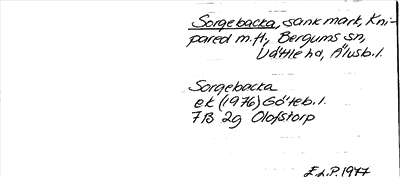 Sorgebacka, sank mark, Kni-
pared m.fl., Bergums sn,
Vättle hd, Älvsb.l.
Sorgebacka
ek (1976) Göteb.l.
7B 2g Olofstorp
E.L.P. 1977